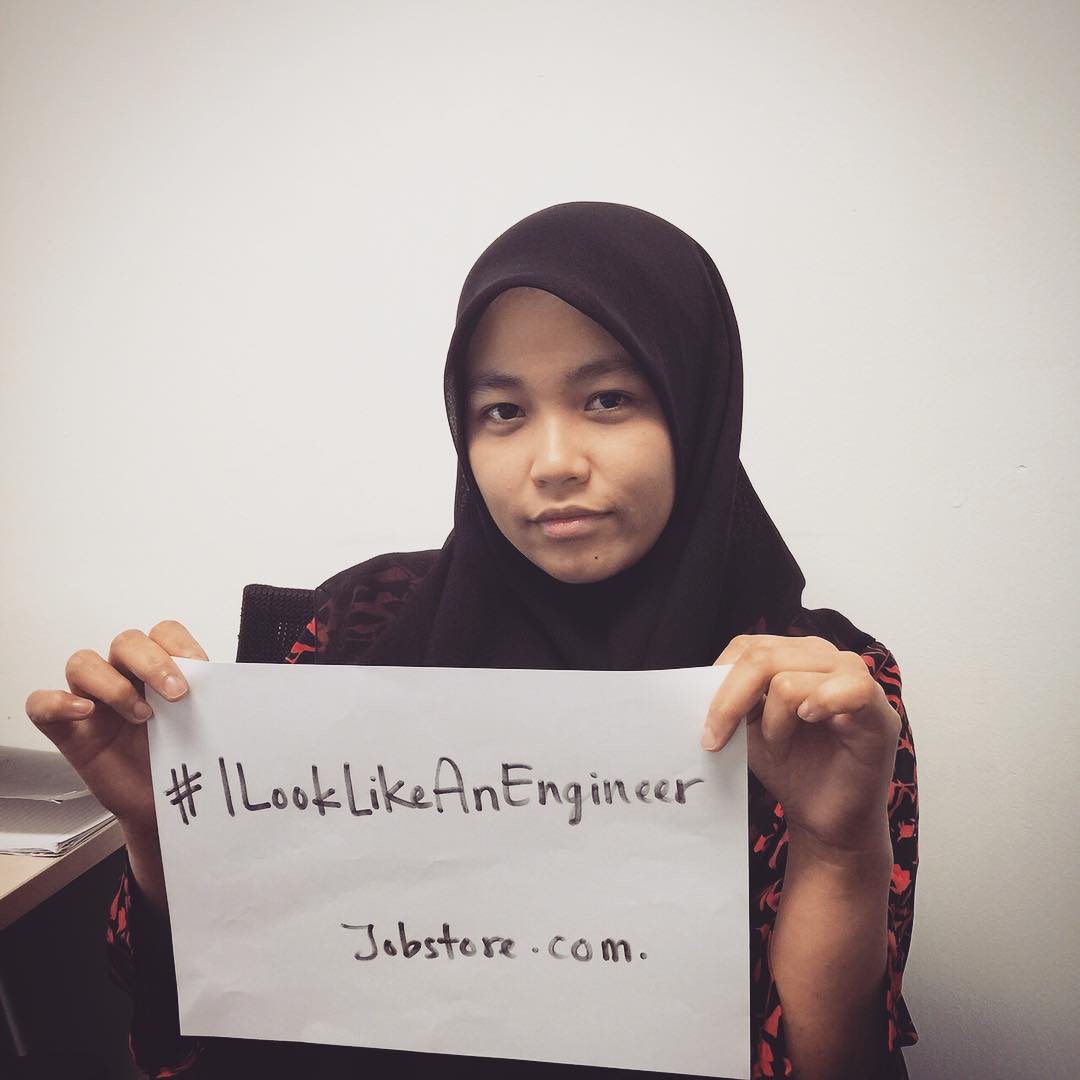 #ILookLikeAnEngineer
Jobstore.com.